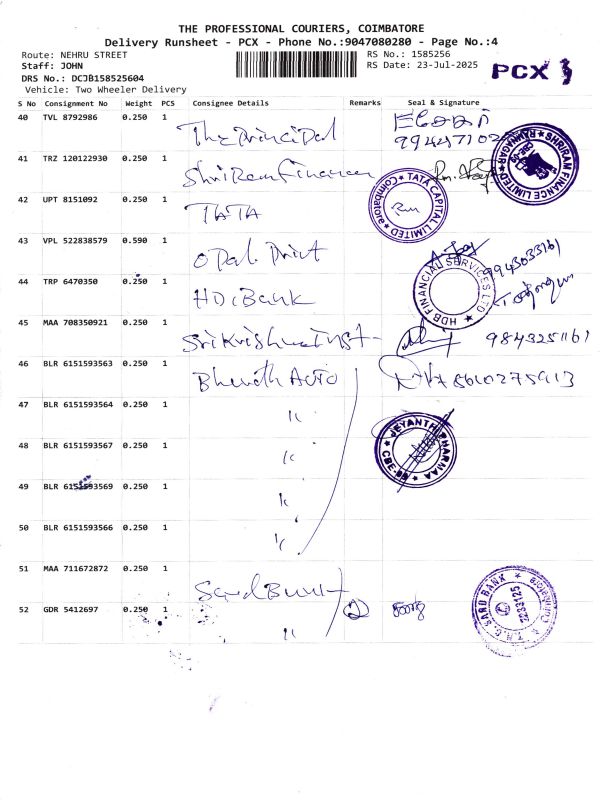 THE PROFESSIONAL COURIERS, COIMBATORE
Delivery Runsheet - PCX - Phone No.:9047080280 - Page No.:4
Route: NEHRU STREET
RS No.: 1585256
Staff: JOHN
RS Date: 23-Jul-2025
PCX
DRS No.: DCJB158525604
Vehicle: Two Wheeler Delivery
S No Consignment No Weight PCS Consignee Details Remarks Seal & Signature
40 TVL 8792986 0.250 1 The Principal
41 TRZ 120122930 0.250 1 Shri Ram Finance
SHRIRAM FINANCE LIMITED
RAMNAGAR
42 UPT 8151092 0.250 1 TATA
TATA CAPITAL LIMITED
Coimbatore
43 VPL 522838579 0.590 1 Opal Print
9943033161
44 TRP 6470350 0.250 1 HDC Bank
HDB FINANCIAL SERVICES LTD
45 MAA 708350921 0.250 1 Sri Krishna Inst- 9843251161
46 BLR 6151593563 0.250 1 Bharath Auto 8610275913
47 BLR 6151593564 0.250 1 "
JEYANTHI PHARMAA
48 BLR 6151593567 0.250 1 "
49 BLR 6151593569 0.250 1 "
50 BLR 6151593566 0.250 1 "
51 MAA 711672872 0.250 1
52 GDR 5412697 0.250 1 " 2
T.N.C. SARD BANK
Coimbatore